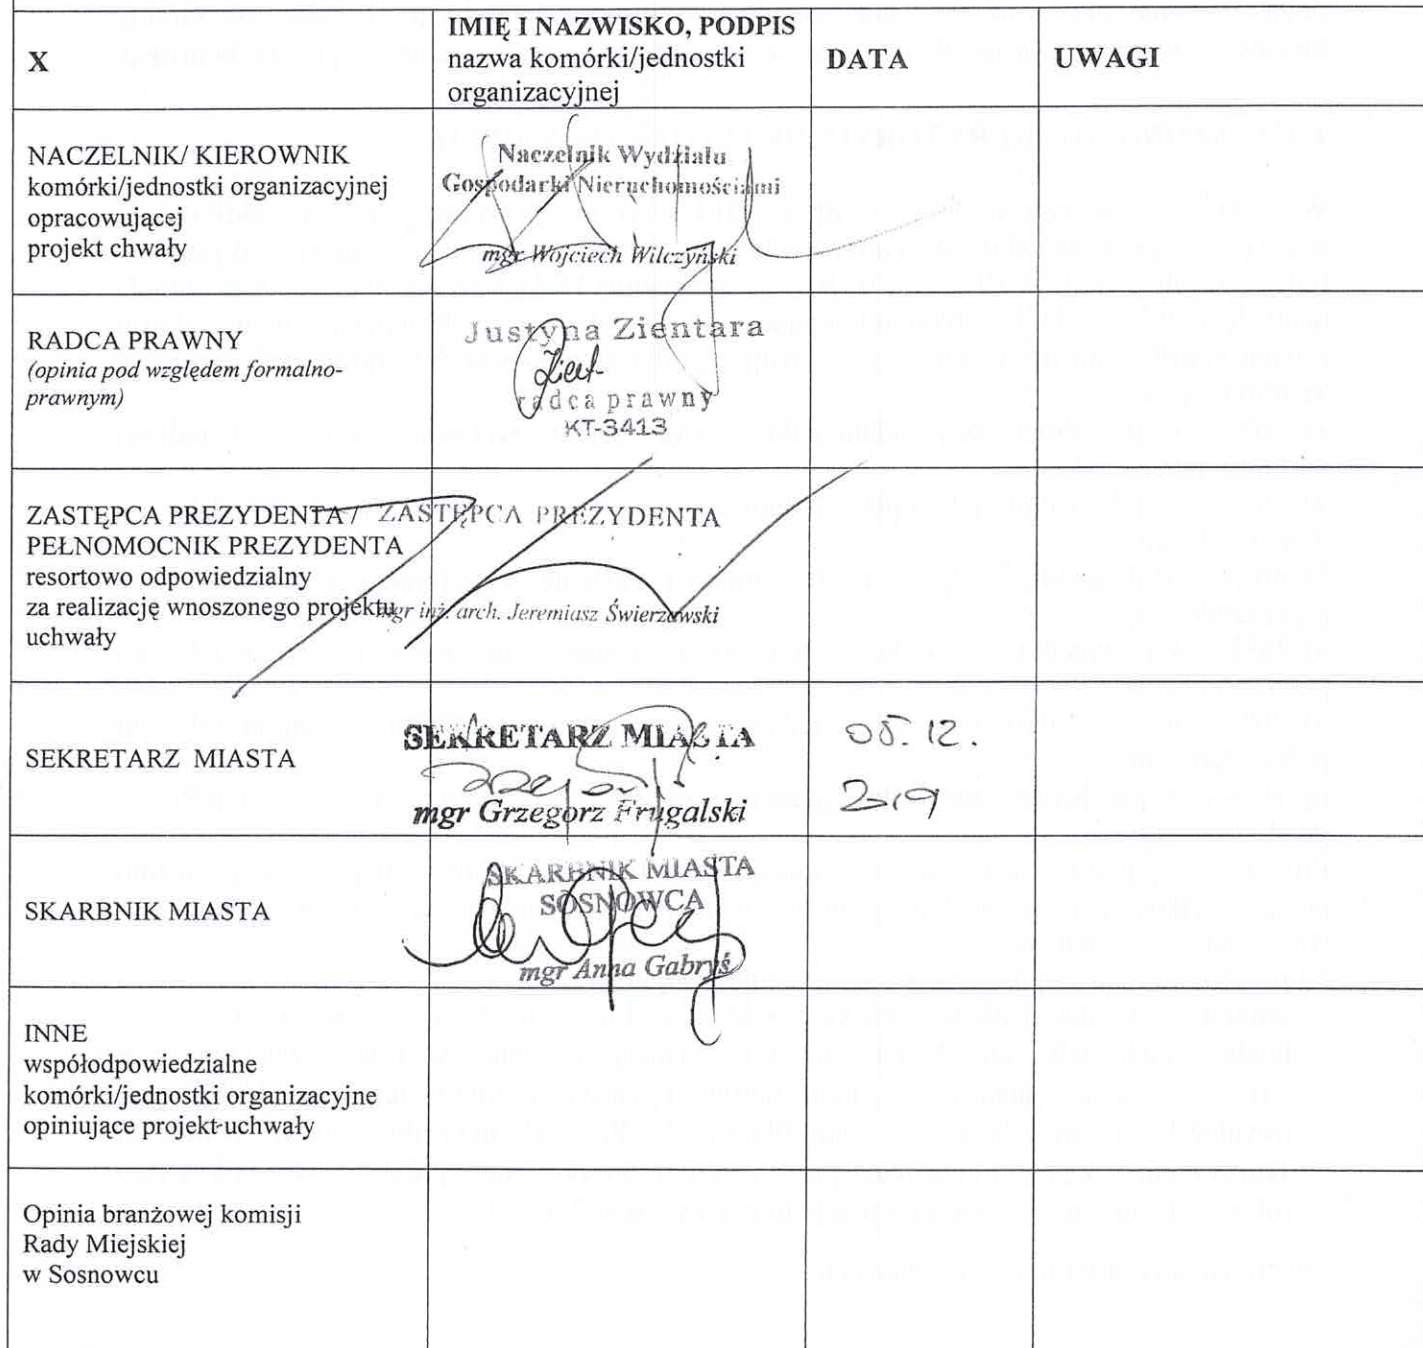 X
IMIĘ I NAZWISKO, PODPIS
nazwa komórki/jednostki
organizacyjnej
DATA
UWAGI
NACZELNIK/ KIEROWNIK
komórki/jednostki organizacyjnej
opracowującej
projekt chwały
Naczelnik Wydziału
Gospodarki Nieruchomościami
mgr Wojciech Wilczyński
RADCA PRAWNY
(opinia pod względem formalno-
prawnym)
Justyna Zientara
radca prawny
KT-3413
ZASTĘPCA PREZYDENTA /
PEŁNOMOCNIK PREZYDENTA
resortowo odpowiedzialny
za realizację wnoszonego projektu
uchwały
ZASTĘPCA PREZYDENTA
mgr inż. arch. Jeremiasz Świerzawski
SEKRETARZ MIASTA
SEKRETARZ MIASTA
mgr Grzegorz Frugalski
05.12.
2019
SKARBNIK MIASTA
SKARBNIK MIASTA
SOSNOWCA
mgr Anna Gabryś
INNE
współodpowiedzialne
komórki/jednostki organizacyjne
opiniujące projekt uchwały
Opinia branżowej komisji
Rady Miejskiej
w Sosnowcu